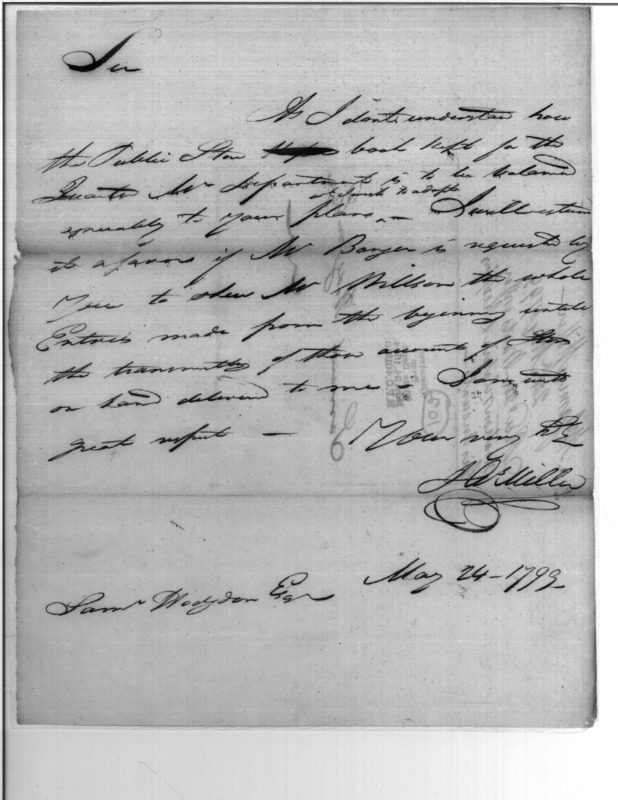 Sir
As I dont understan how
the Public Store book kept for the
Quarter Mr Department is to be balanced
as I wish to adopt
to your plan, — I will esteem
it a favor if Mr Banger is requested by
You to shew Mr Willson the whole
Entries made from the begining untill
the transmitts of those account of Stores
on hand delivered to me I am with
great respect — Your very
J. Ds Miller
May 24 - 1799
Saml Hodgdon Esqr